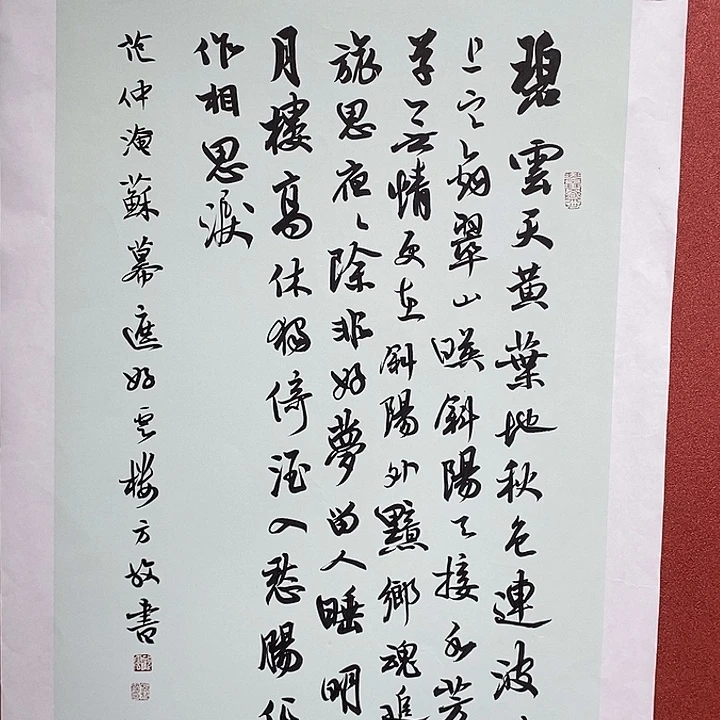 碧雲天黃葉地秋色連波
上寒烟翠山暎斜陽天接水芳
草無情更在斜陽外黯鄉魂追
旅思夜々除非好夢留人睡明
月樓高休獨倚酒入愁腸化
作相思淚
范仲淹蘇幕遮好雲樓方書